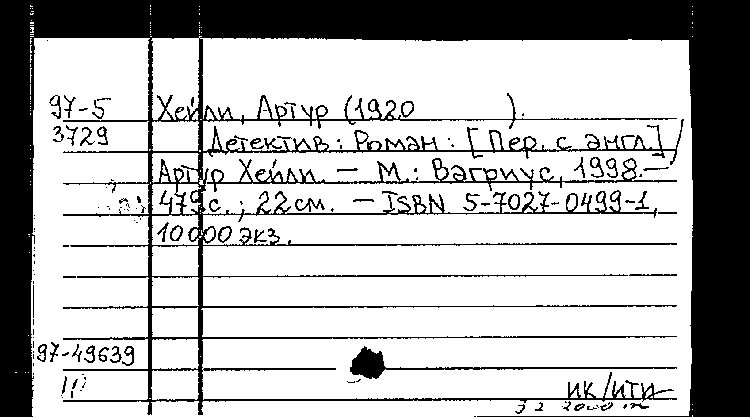 97-5 Хейли, Артур (1920 ).
3729 Детектив: Роман: [Пер. с англ.] /
Артур Хейли. — М.: Вагриус, 1998.—
479с.; 22см. — ISBN 5-7027-0499-1,
10000 экз.
97-49639
ИК/ИТИ